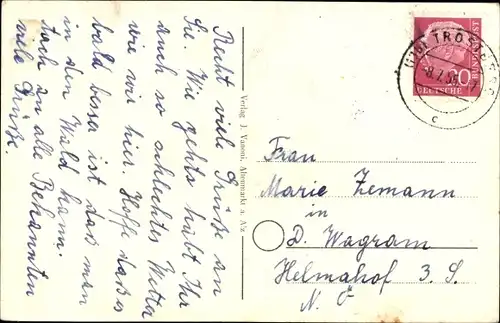 Recht viele Grüße an
Sie. Wie gehts habt Ihr
auch so schlechtes Wetter
wie wir hier. Hoffe daß es
bald besser ist das man
in den Wald kann.
Noch an alle Bekannten
viele Grüße.
Verlag J. Vanoni, Altenmarkt a. Alz
DEUTSCHE
BUNDESPOST
TROSTBERG
8.7.
c
Frau
Marie Zemann
in
D. Wagram
Helmahof 3. S.
N. Ö